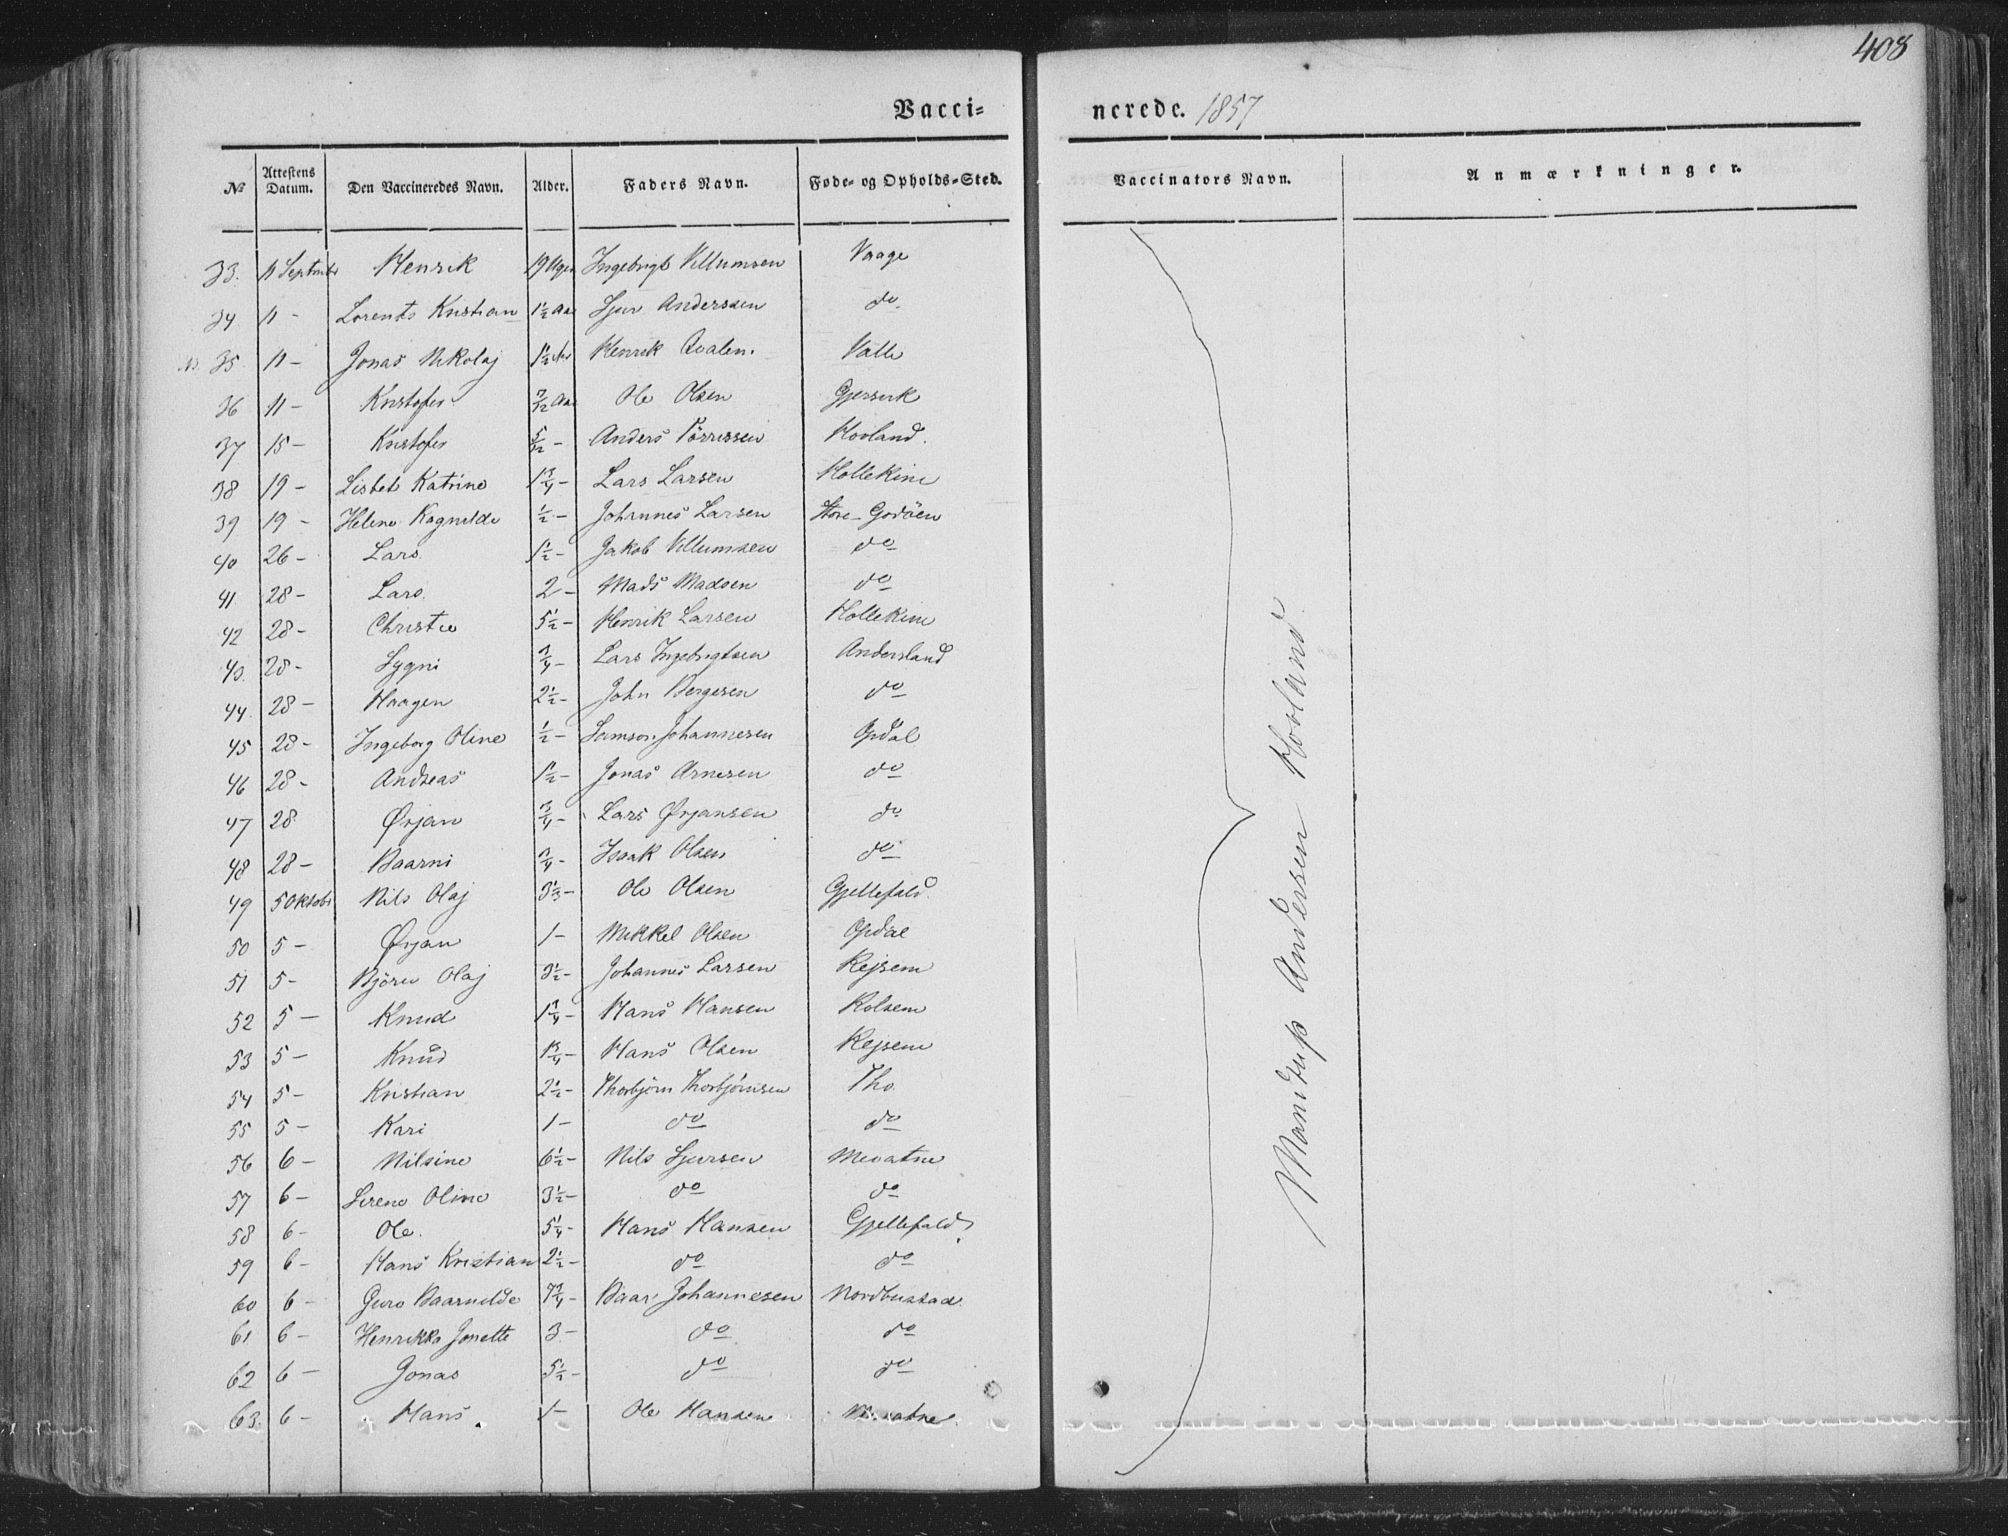 408
Vacci= nerede. 1857
№ Attestens Datum. Den Vaccineredes Navn. Alder. Faders Navn. Føde- og Opholds-Sted. Vaccinators Navn. Anmærkninger.
33. 11 Septmbr Henrik 19 Uger Ingebrigt Villumsen Vaage
34. 11 - Lorents Kristian 1½ Aar Sjur Anderssen do
35 11 - Jonas Nikolaj 1½ Aar Henrik Qvalen. Valle
36 11 - Kristofer 7/12 Aar Ole Olsen Gjersvik
37 15 - Kristofer 5/12 - Anders Törrissen Hovland.
38 19 - Lisbet Katrine 1¾ - Lars Larsen Hollekim
39 19 - Helene Ragnilde ½ - Johannes Larsen Store-Godöen
40 26 - Lars 1½ - Jakob Villumsen do
41 28 - Lars. 2 - Mads Madsen do
42 28 - Christie 5½ - Henrik Larsen Hollekim
43. 28 - Sygni ¾ - Lars Ingebrigtsen Andersland
44. 28 - Haagen 2½ - John Bergesen do
45 28 - Ingeborg Oline ½ - Samson Johannesen Opdal
46 28 - Andreas 1½ - Jonas Arnesen do
47 28 Ørjan ¾ - Lars Ørjansen do
48 28 - Baarni ¾ - Isaak Olsen do
49 5 Oktobr Nils Olaj 3⅓ - Ole Olsen Gjellefald.
50 5 - Ørjan 1 - Mikkel Olsen Opdal
51 5 - Björn Olaj 3½ - Johannes Larsen Rejsem
52 5 - Knud 1¾ - Hans Hansen Kolsem
53 5 - Knud 1¾ - Hans Olsen Rejsem
54 5 - Kristian 2½ - Thorbjörn Thorbjörnsen Tho
55 5 - Kari 1 - do do
56 6 - Nilsine 6½ - Nils Sjursen Mevatne
57 6 - Serene Oline 3½ - do do
58 6 - Ole. 5¼ - Hans Hansen Gjellefald
59 6 - Hans Kristian 2½ - do do
60 6 - Guro Baarnilde 7¾ - Baar Johannesen Nordbustad
61 6 - Henrikka Jonette 3 - do do
62 6 - Jonas 5½ - do do
63. 6 - Hans. 1 - Ole Hansen
Mandrup Andersen Hovland